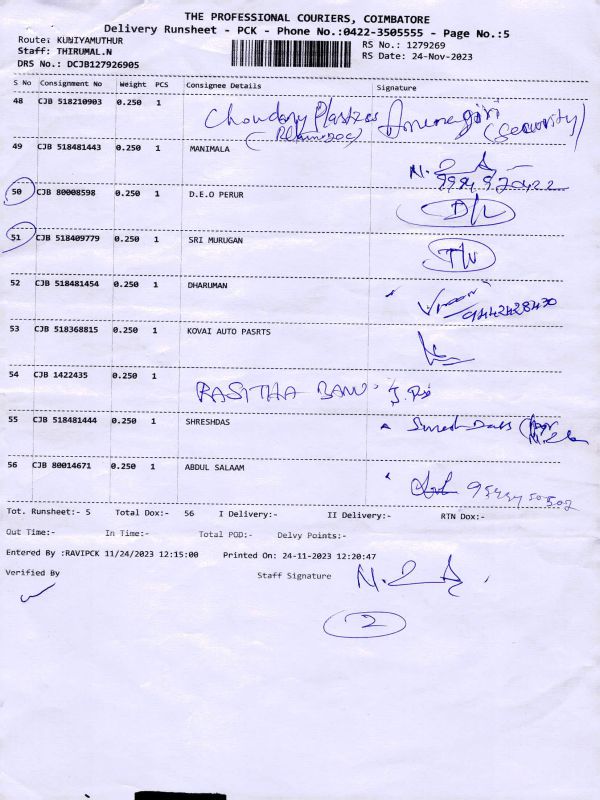 THE PROFESSIONAL COURIERS, COIMBATORE
Delivery Runsheet - PCK - Phone No.:0422-3505555 - Page No.:5
Route: KUNIYAMUTHUR
RS No.: 1279269
Staff: THIRUMAL.N
RS Date: 24-Nov-2023
DRS No.: DCJB127926905
S No Consignment No Weight PCS Consignee Details Signature
48 CJB 518210903 0.250 1 Choudary (Security)
49 CJB 518481443 0.250 1 MANIMALA
50 CJB 80008598 0.250 1 D.E.O PERUR D/L
51 CJB 518409779 0.250 1 SRI MURUGAN
52 CJB 518481454 0.250 1 DHARUMAN 9442428430
53 CJB 518368815 0.250 1 KOVAI AUTO PASRTS
54 CJB 1422435 0.250 1 RASITHA BANU
55 CJB 518481444 0.250 1 SHRESHDAS
56 CJB 80014671 0.250 1 ABDUL SALAAM
Tot. Runsheet:- 5 Total Dox:- 56 I Delivery:- II Delivery:- RTN Dox:-
Out Time:- In Time:- Total POD:- Delvy Points:-
Entered By :RAVIPCK 11/24/2023 12:15:00 Printed On: 24-11-2023 12:20:47
Verified By Staff Signature
2